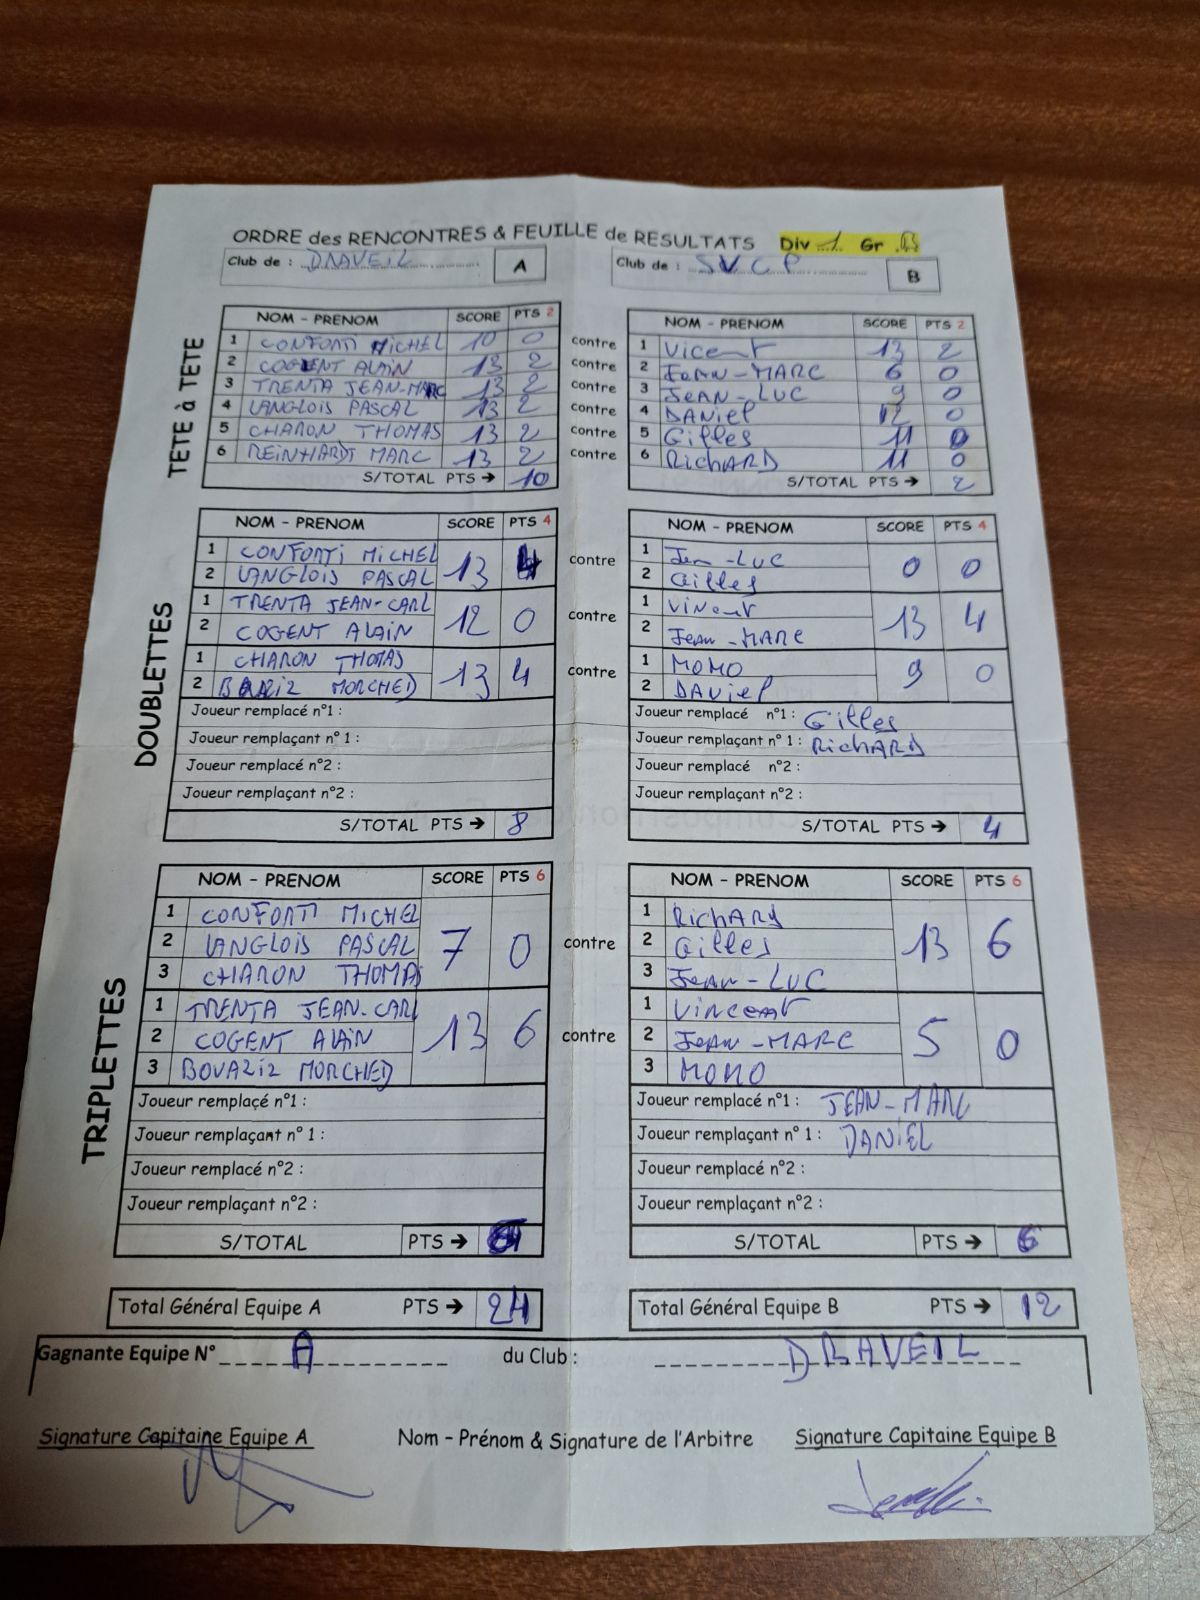 ORDRE des RENCONTRES & FEUILLE de RESULTATS Div 1 Gr B
Club de : DRAVEIL A Club de : SVCP B
TETE à TETE
NOM - PRENOM SCORE PTS 2 NOM - PRENOM SCORE PTS 2
1 CONFORTI MICHEL 10 0 contre 1 Vicent 13 2
2 COGENT ALAIN 13 2 contre 2 JEAN-MARC 6 0
3 TRENTA JEAN-MARC 13 2 contre 3 JEAN-LUC 9 0
4 LANGLOIS PASCAL 13 2 contre 4 DANiel 12 0
5 CHARON THOMAS 13 2 contre 5 Gilles 11 0
6 REINHARDT MARC 13 2 contre 6 RichARD 11 0
S/TOTAL PTS → 10 S/TOTAL PTS → 2
DOUBLETTES
NOM - PRENOM SCORE PTS 4 NOM - PRENOM SCORE PTS 4
1 CONFORTI MICHEL 13 4 contre 1 Jean-LUC 0 0
2 LANGLOIS PASCAL 2 Gilles
1 TRENTA JEAN-CARL 12 0 contre 1 Vincent 13 4
2 COGENT ALAIN 2 Jean-MARC
1 CHARON THOMAS 13 4 contre 1 MOMO 9 0
2 BOUAZIZ MORCHED 2 DANiel
Joueur remplacé n°1 : Joueur remplacé n°1 : Gilles
Joueur remplaçant n° 1 : Joueur remplaçant n° 1 : RichARD
Joueur remplacé n°2 : Joueur remplacé n°2 :
Joueur remplaçant n°2 : Joueur remplaçant n°2 :
S/TOTAL PTS → 8 S/TOTAL PTS → 4
TRIPLETTES
NOM - PRENOM SCORE PTS 6 NOM - PRENOM SCORE PTS 6
1 CONFORTI MICHEL 1 RichARD
2 LANGLOIS PASCAL 7 0 contre 2 Gilles 13 6
3 CHARON THOMAS 3 Jean-LUC
1 TRENTA JEAN-CARL 1 Vincent
2 COGENT ALAIN 13 6 contre 2 Jean-MARC 5 0
3 BOUAZIZ MORCHED 3 MOMO
Joueur remplacé n°1 : Joueur remplacé n°1 : JEAN-MARC
Joueur remplaçant n° 1 : Joueur remplaçant n° 1 : DANIEL
Joueur remplacé n°2 : Joueur remplacé n°2 :
Joueur remplaçant n°2 : Joueur remplaçant n°2 :
S/TOTAL PTS → 6 S/TOTAL PTS → 6
Total Général Equipe A PTS → 24 Total Général Equipe B PTS → 12
Gagnante Equipe N° A du Club : DRAVEIL
Signature Capitaine Equipe A Nom - Prénom & Signature de l'Arbitre Signature Capitaine Equipe B